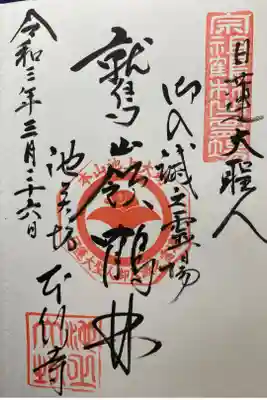 日蓮大聖人
御入滅之霊場
鷲嶺鶴林
池上大坊 本行寺
令和三年三月二十六日